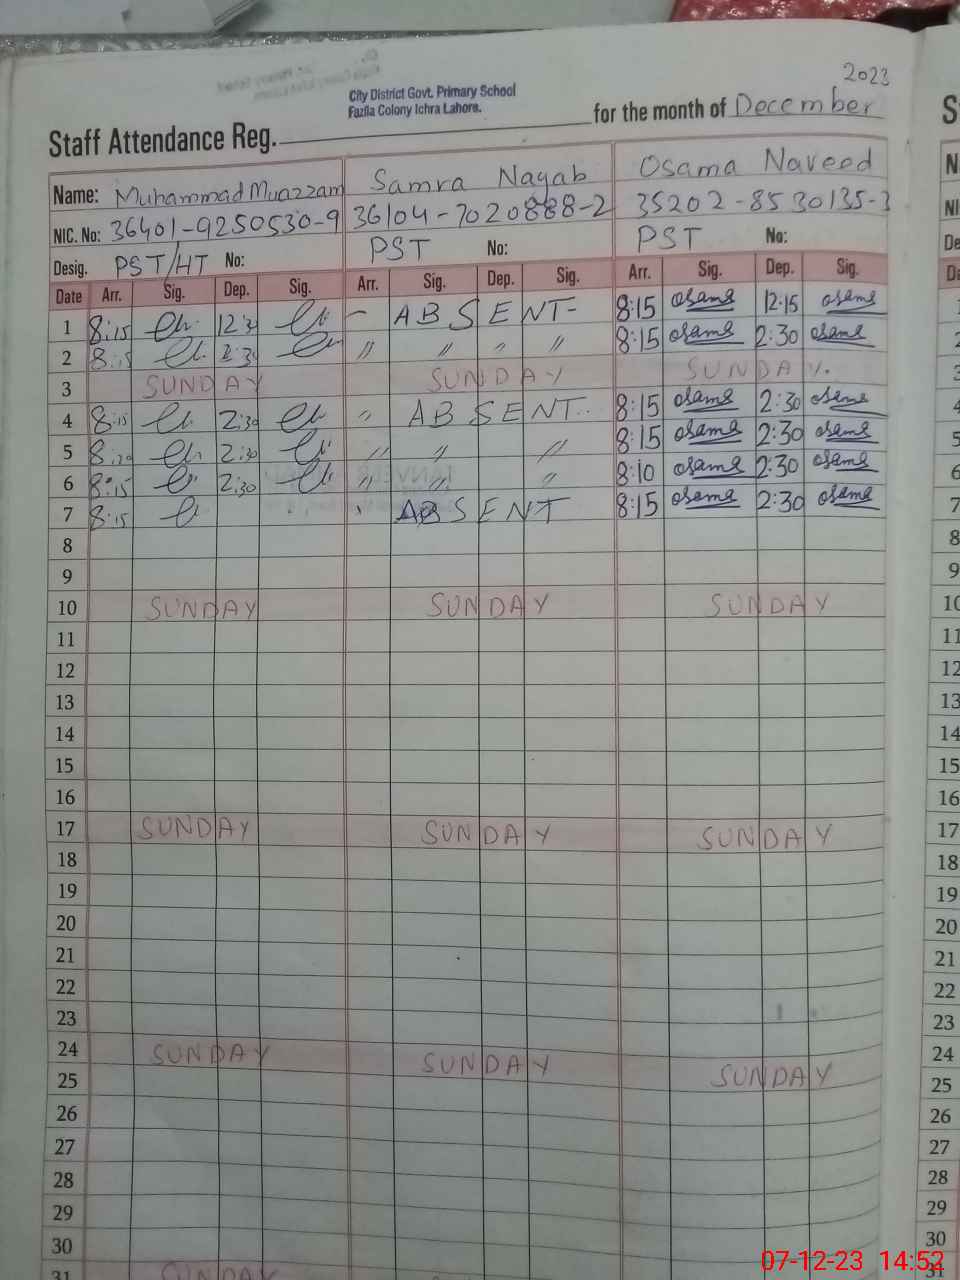 2023
City District Govt. Primary School
Fazila Colony Ichra Lahore.
Staff Attendance Reg. for the month of December
Name: Muhammad Muazzam Samra Nayab Osama Naveed
NIC. No: 36401-9250530-9 36104-7020888-2 35202-8530135-
Desig. PST/HT No: PST No: PST No:
Date Arr. Sig. Dep. Sig. Arr. Sig. Dep. Sig. Arr. Sig. Dep. Sig.
1 8:15 12:3 - ABSENT- 8:15 osama 12:15 osama
2 8:15 2:30 " " " " 8:15 osama 2:30 osama
3 SUNDAY SUNDAY SUNDAY.
4 8:15 2:30 " ABSENT.. 8:15 osama 2:30 osama
5 8:20 2:30 " " " 8:15 osama 2:30 osama
6 8:15 2:30 " " " 8:10 osama 2:30 osama
7 8:15 ABSENT 8:15 osama 2:30 osama
8
9
10 SUNDAY SUNDAY SUNDAY
11
12
13
14
15
16
17 SUNDAY SUNDAY SUNDAY
18
19
20
21
22
23
24 SUNDAY SUNDAY SUNDAY
25
26
27
28
29
30
31 SUNDAY
07-12-23 14:52